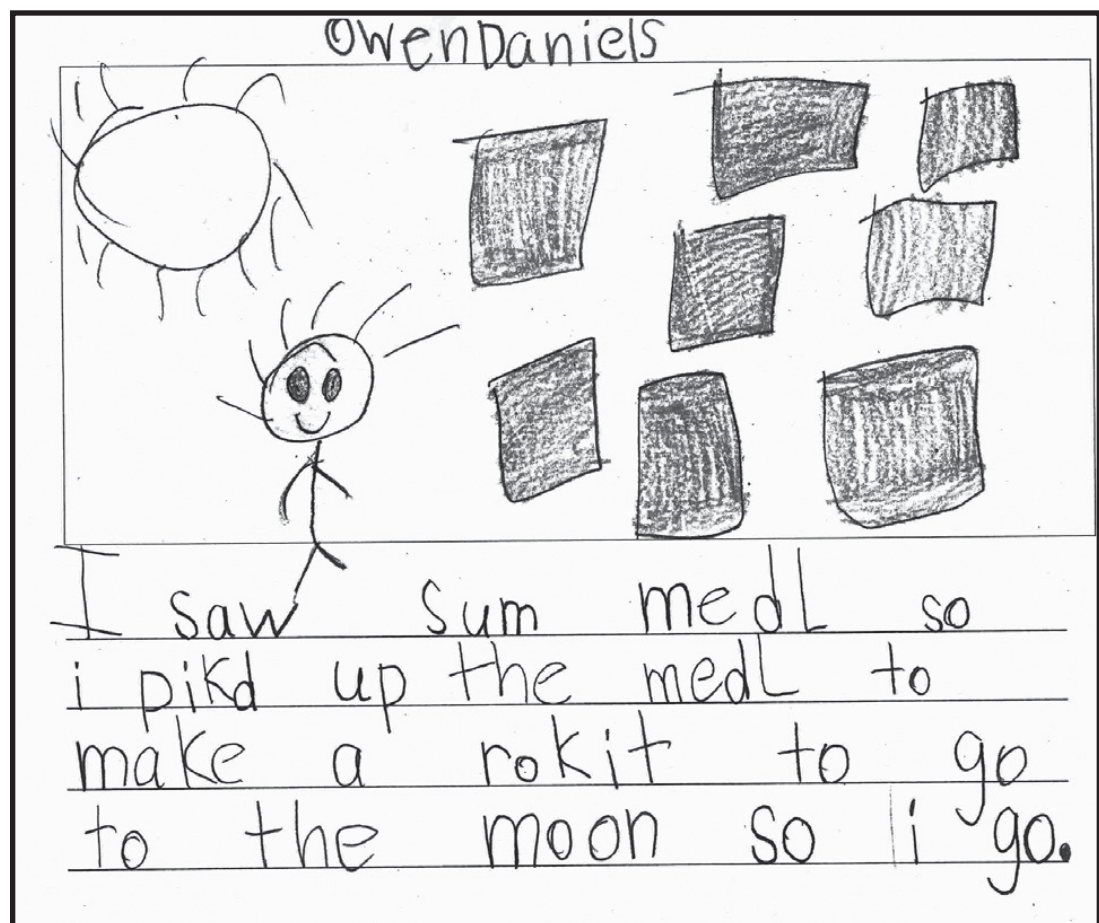 OwenDaniels
I saw sum medL so
i pikd up the medL to
make a rokit to go
to the moon so i go.